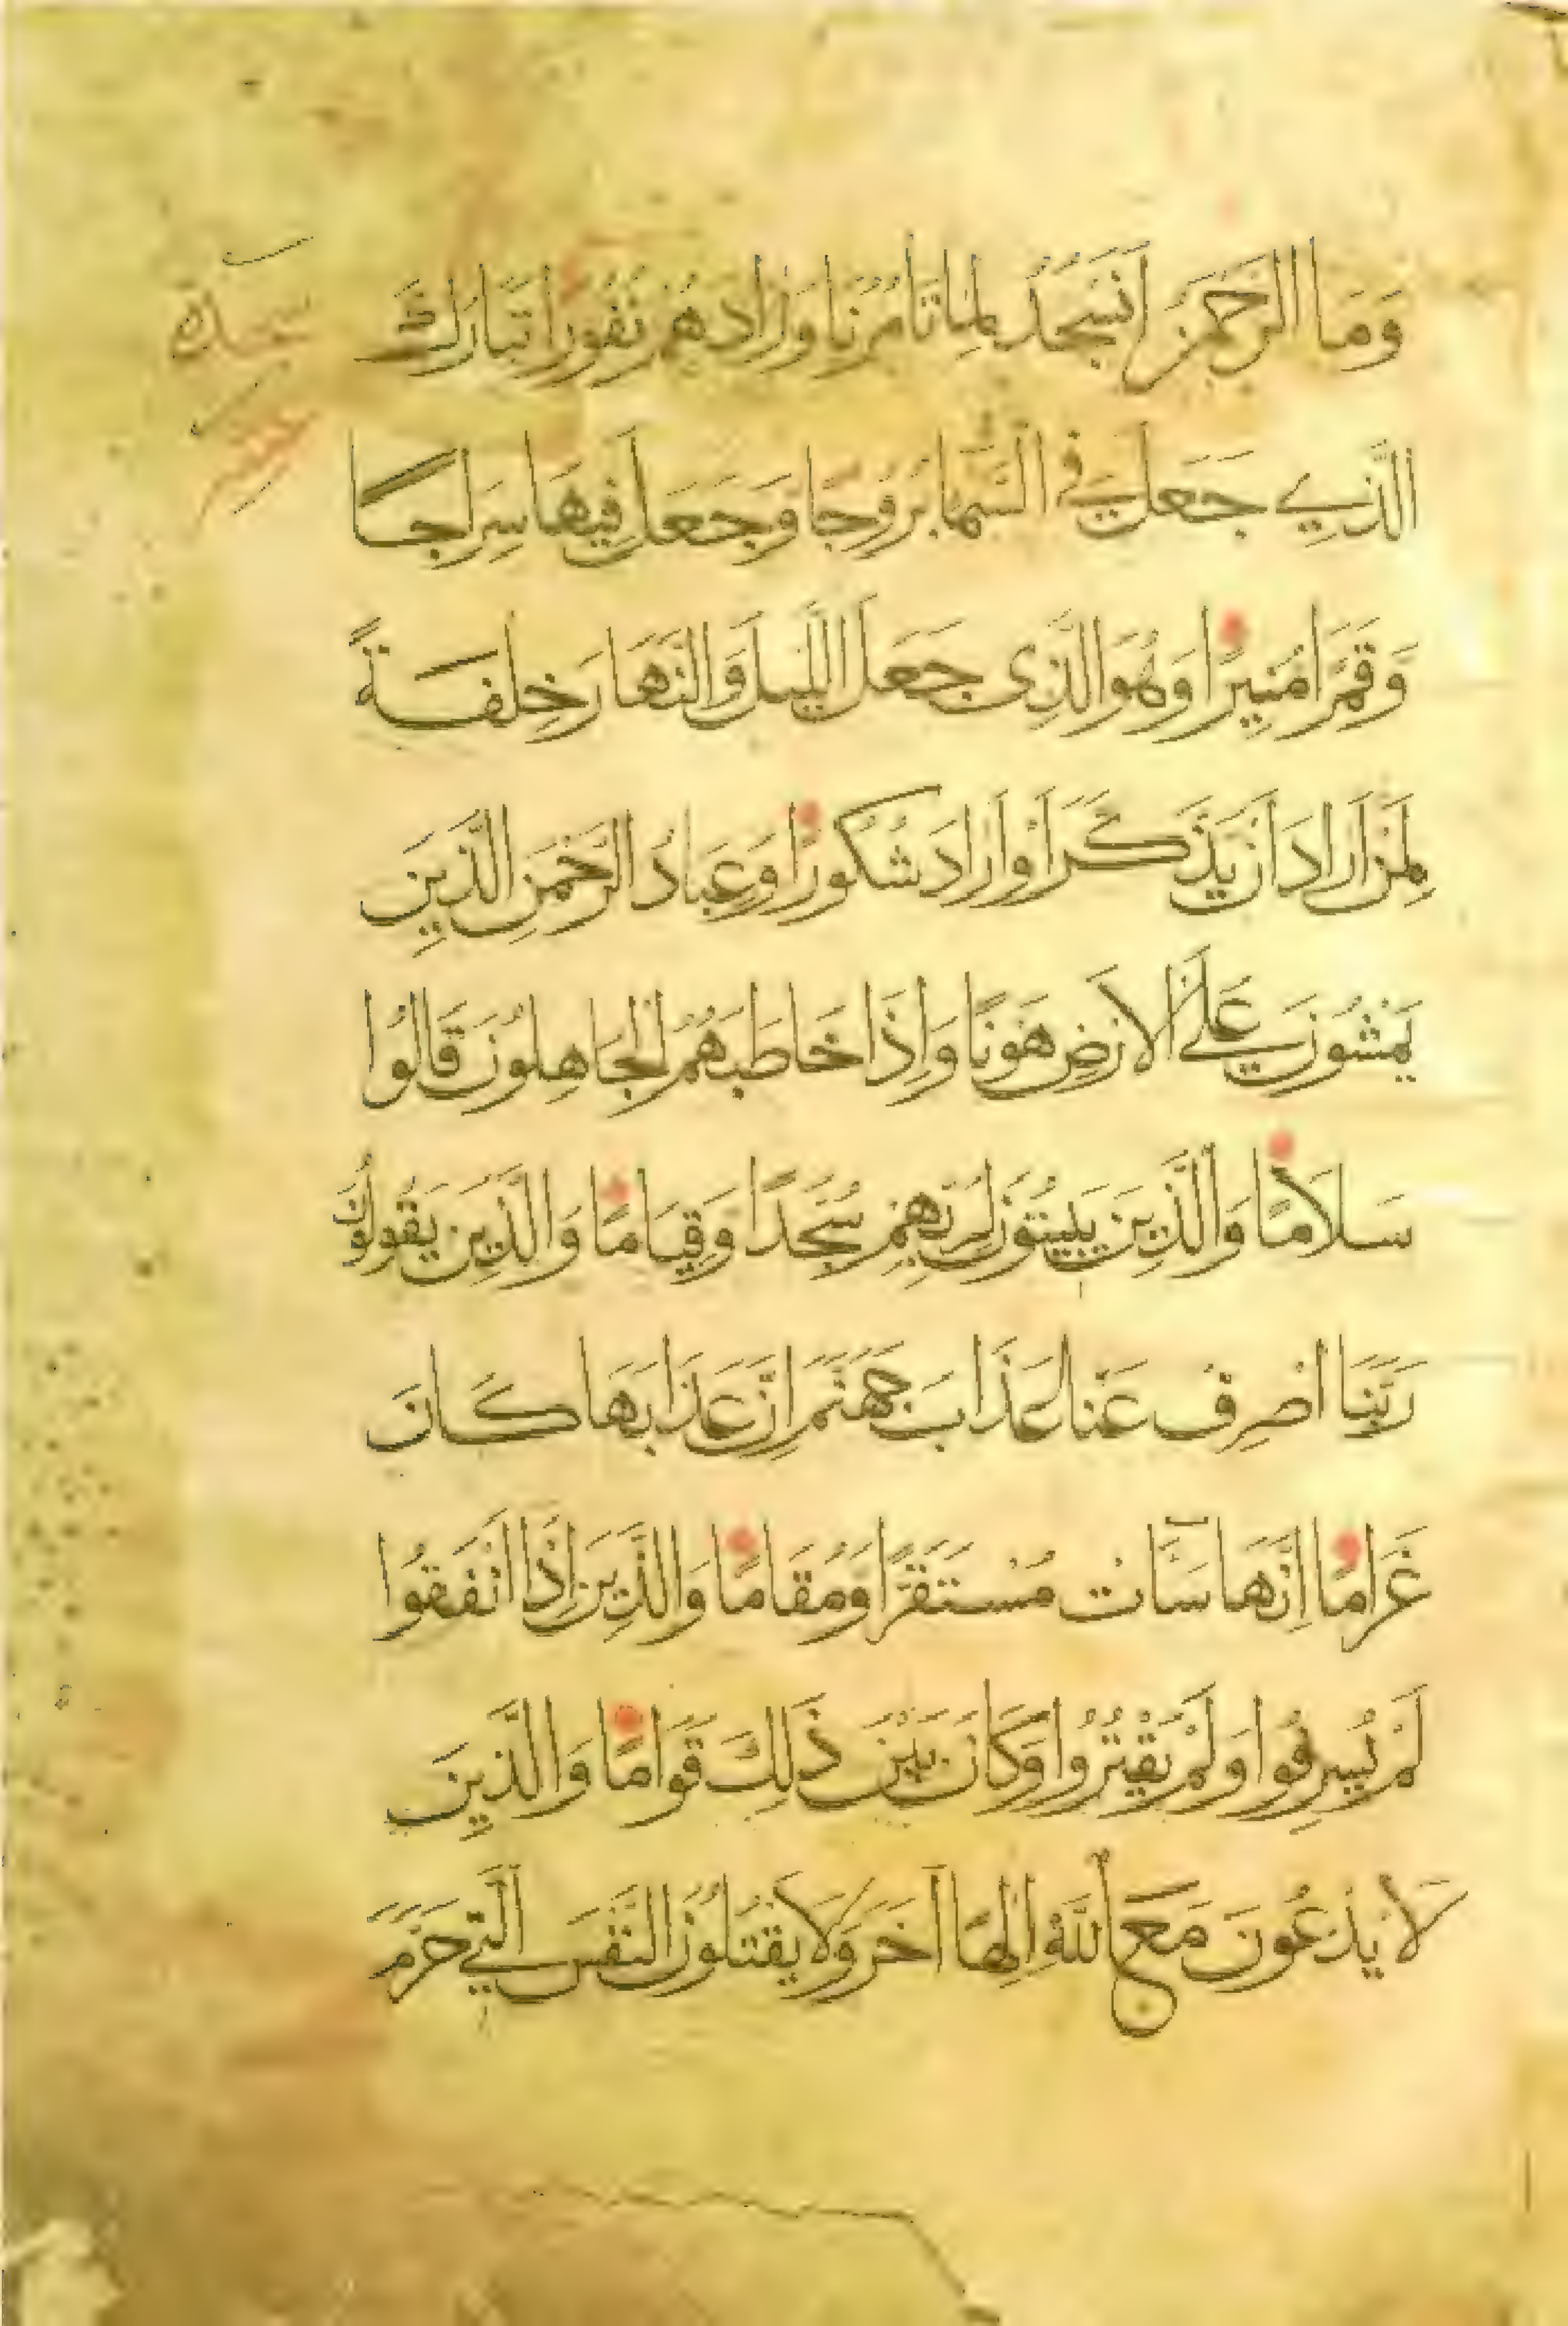 وَمَا الرَّحْمَنُ اَنَسْجُدُ لِمَا تَامُرُنَا وَزَادَهُمْ نُفُورًا تَبَارَكَ
سجدة
الَّذِي جَعَلَ فِي السَّمَا بُرُوجًا وَجَعَلَ فِيهَا سِرَاجًا
وَقَمَرًا مُنِيرًا وَهُوَ الَّذِى جَعَلَ اللَّيْلَ وَالنَّهَارَ خِلْفَةً
لِمَنْ اَرَادَ اَنْ يَذَّكَّرَ اَوْ اَرَادَ شُكُورًا وَعِبَادُ الرَّحْمَنِ الَّذِينَ
يَمْشُونَ عَلَى الْاَرْضِ هَوْنًا وَاِذَا خَاطَبَهُمُ الْجَاهِلُونَ قَالُوا
سَلَامًا وَالَّذِينَ يَبِيتُونَ لِرَبِّهِمْ سُجَّدًا وَقِيَامًا وَالَّذِينَ يَقُولُونَ
رَبَّنَا اصْرِفْ عَنَّا عَذَابَ جَهَنَّمَ اِنَّ عَذَابَهَا كَانَ
غَرَامًا اِنَّهَا سَآَتْ مُسْتَقَرًّا وَمُقَامًا وَالَّذِينَ اِذَا اَنْفَقُوا
لَمْ يُسْرِفُوا وَلَمْ يَقْتُرُوا وَكَانَ بَيْنَ ذَلِكَ قَوَامًا وَالَّذِينَ
لَا يَدْعُونَ مَعَ اللَّهِ اِلَهًا آخَرَ وَلَا يَقْتُلُونَ النَّفْسَ الَّتِي حَرَّمَ